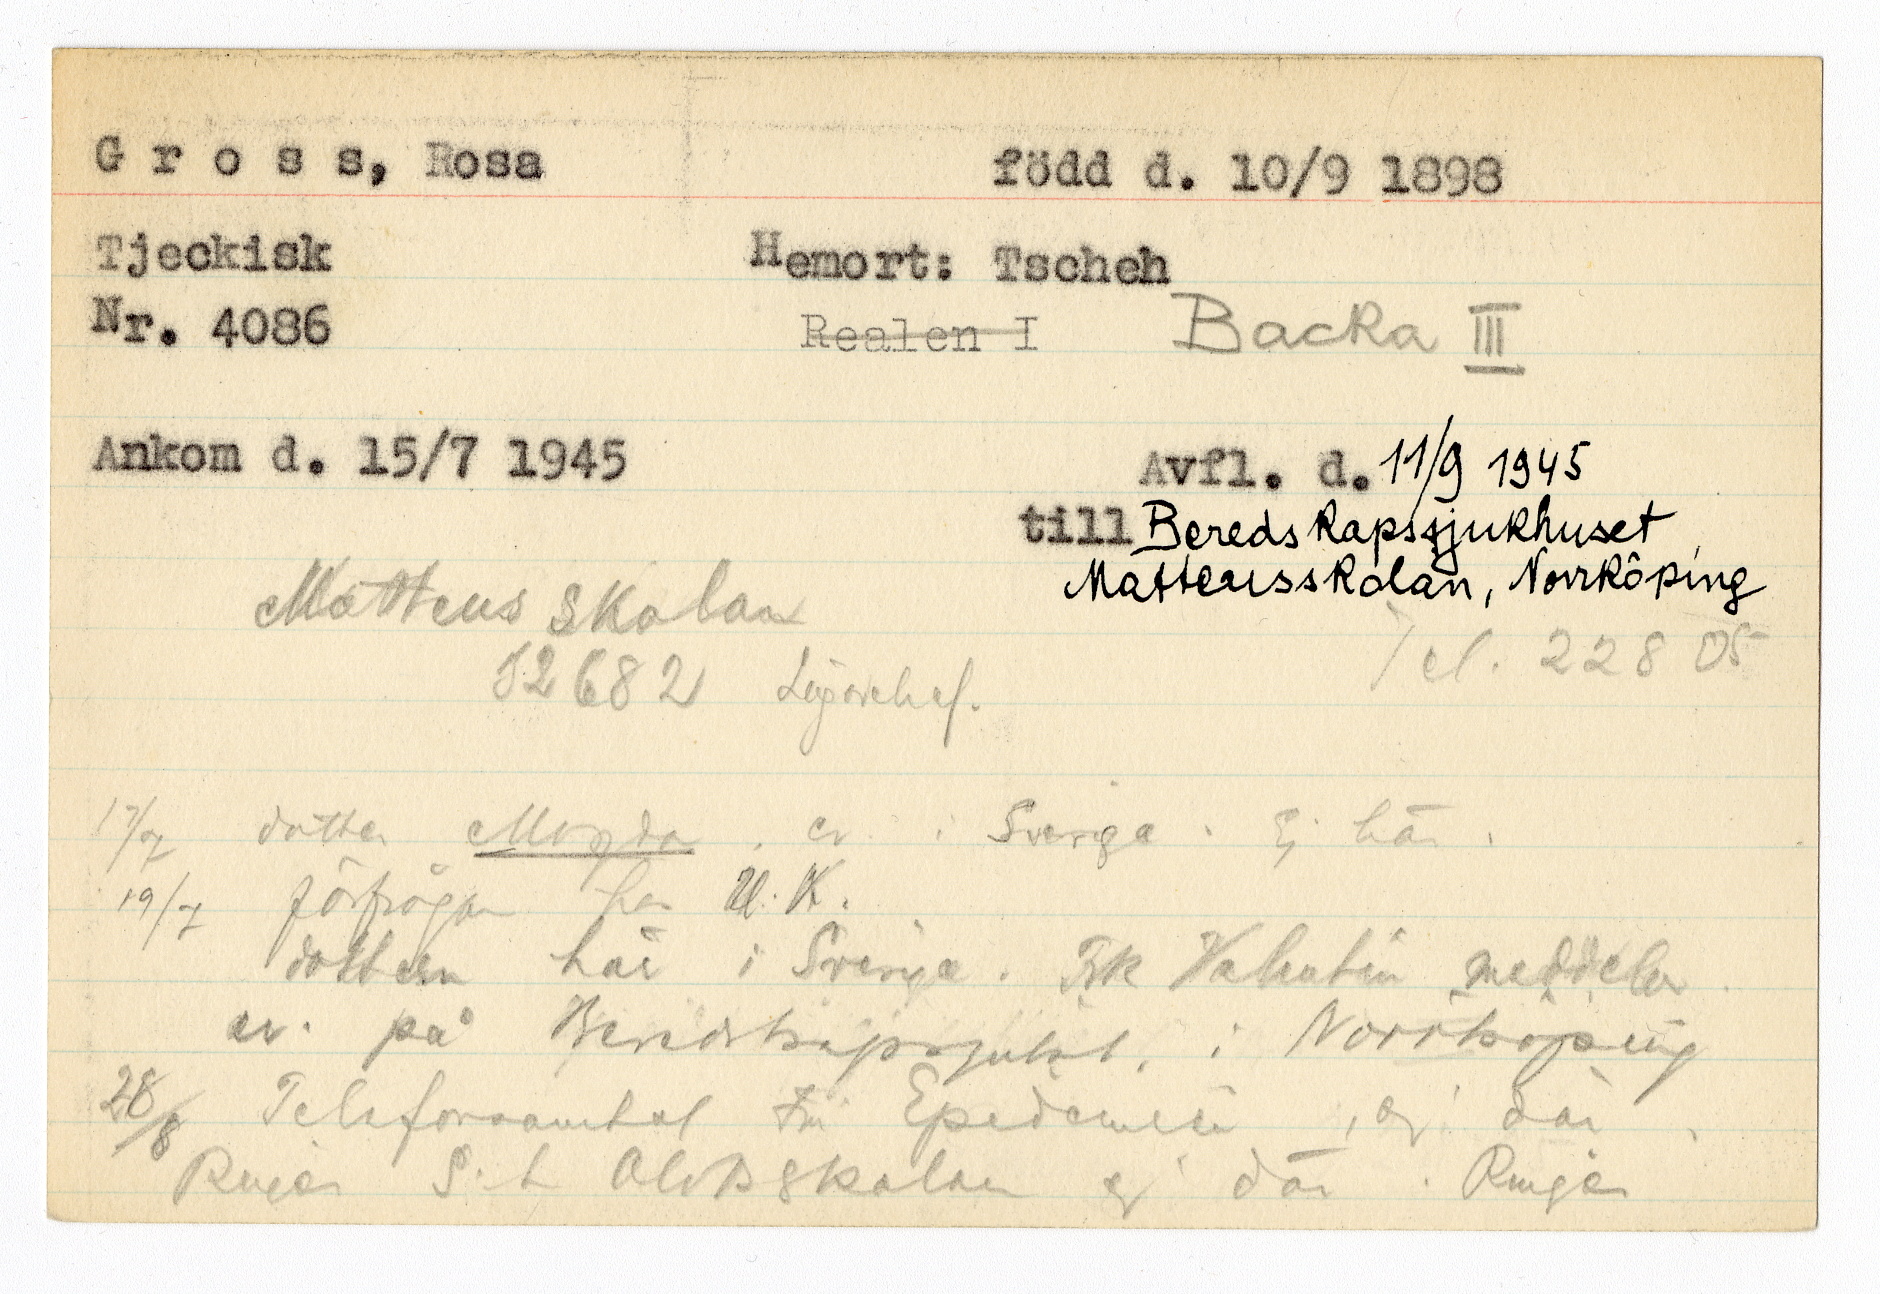 Gross, Rosa född d. 10/9 1898
Tjeckisk Hemort: Tscheh
Nr. 4086 Realen I Backa III
Ankom d. 15/7 1945 Avfl. d. 11/9 1945
till Beredskapssjukhuset
Matteusskolan, Norrköping
Matteus skolan
Tel. 228 05
12682 Lägerchef.
17/7 dotter Magda ev. i Sverige. Ej här.
19/7 förfrågan hos U.K.
dottern här i Sverige. Frk Valentin meddelar
ev. på Beredskapssjukh. i Norrköping
28/8 Telefonsamtal Epedemin, ej där.
Ringer S:t Olofsskolan ej där. Ringer